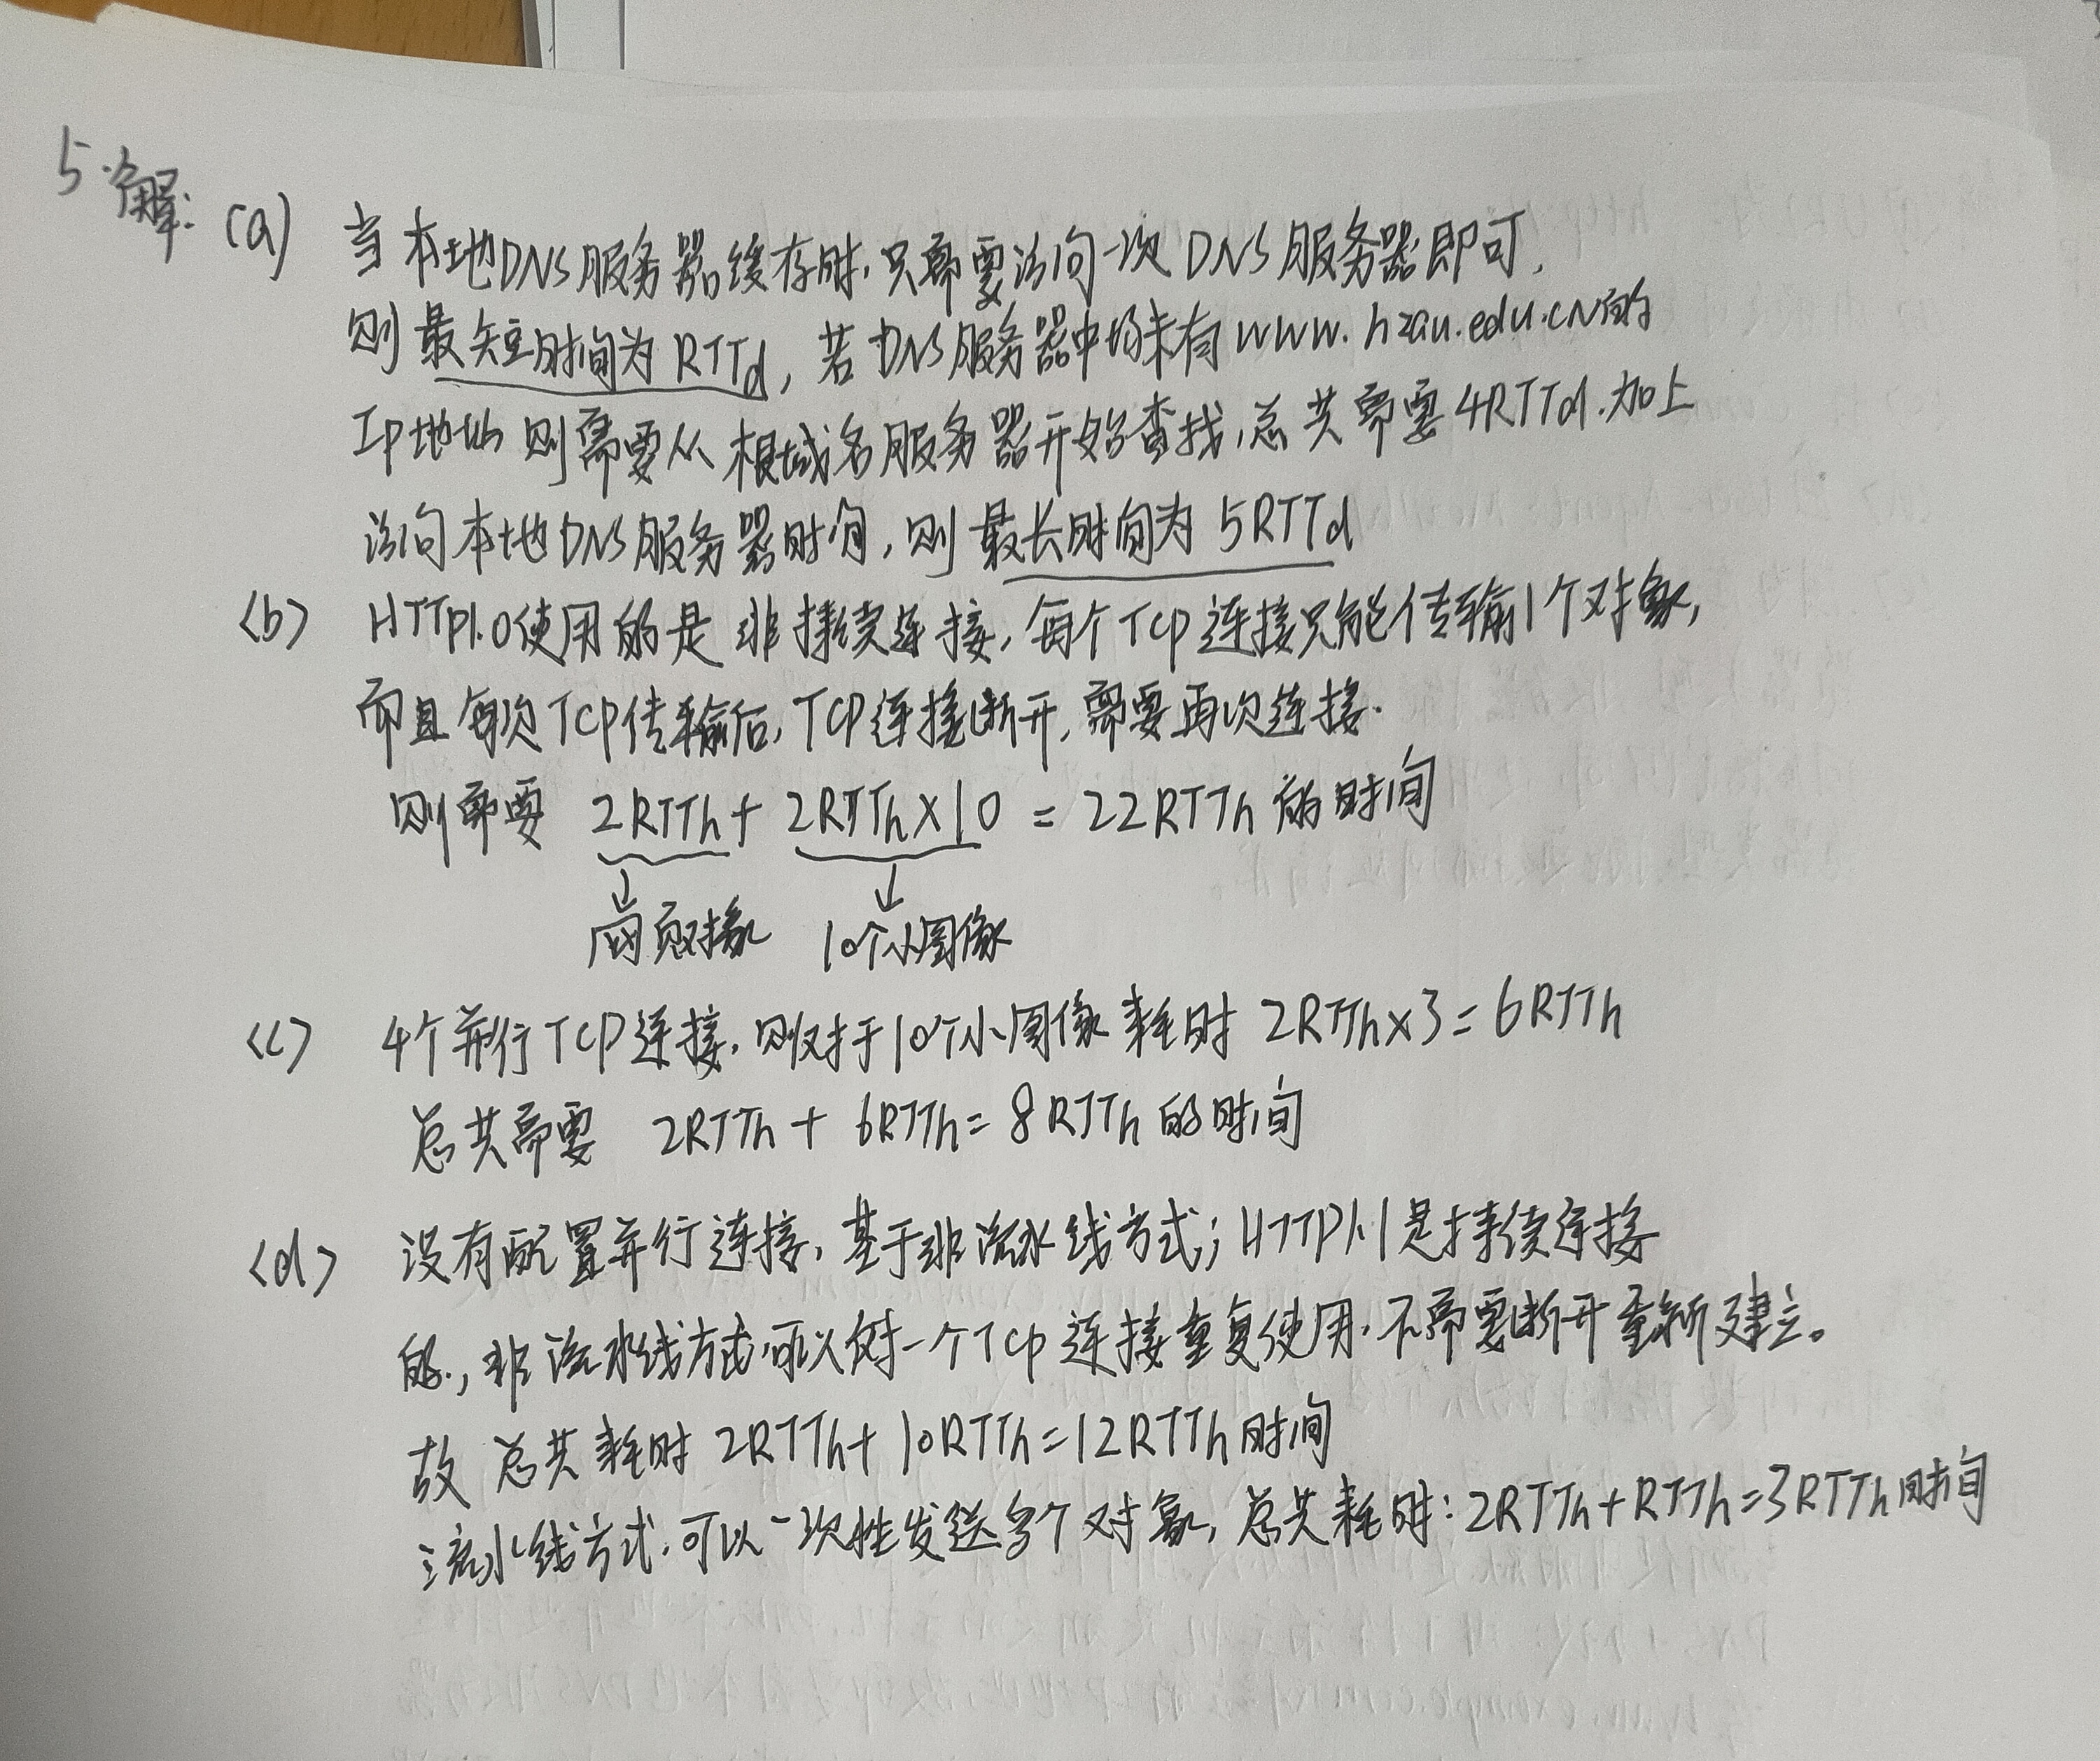 5.解:
(a) 当本地DNS服务器缓存时,只需要访问一次DNS服务器即可,
则最短时间为RTTd,若DNS服务器中均未有www.hzau.edu.cn的
IP地址则需要从根域名服务器开始查找,总共需要4RTTd.加上
访问本地DNS服务器时间,则最长时间为5RTTd
<b> HTTP1.0使用的是非持续连接,每个TCP连接只能传输1个对象,
而且每次TCP传输后,TCP连接断开,需要再次连接.
则需要 2RTTh + 2RTTh×10 = 22RTTh的时间
网页对象 10个小图像
<c> 4个并行TCP连接,则对于10个小图像耗时 2RTTh×3=6RTTh
总共需要 2RTTh + 6RTTh = 8RTTh的时间
<d> 没有配置并行连接,基于非流水线方式;HTTP1.1是持续连接
的,非流水线方式,可以对一个TCP连接重复使用,不需要断开重新建立。
故总共耗时 2RTTh+10RTTh=12RTTh时间
流水线方式,可以一次性发送多个对象,总共耗时:2RTTh+RTTh=3RTTh时间